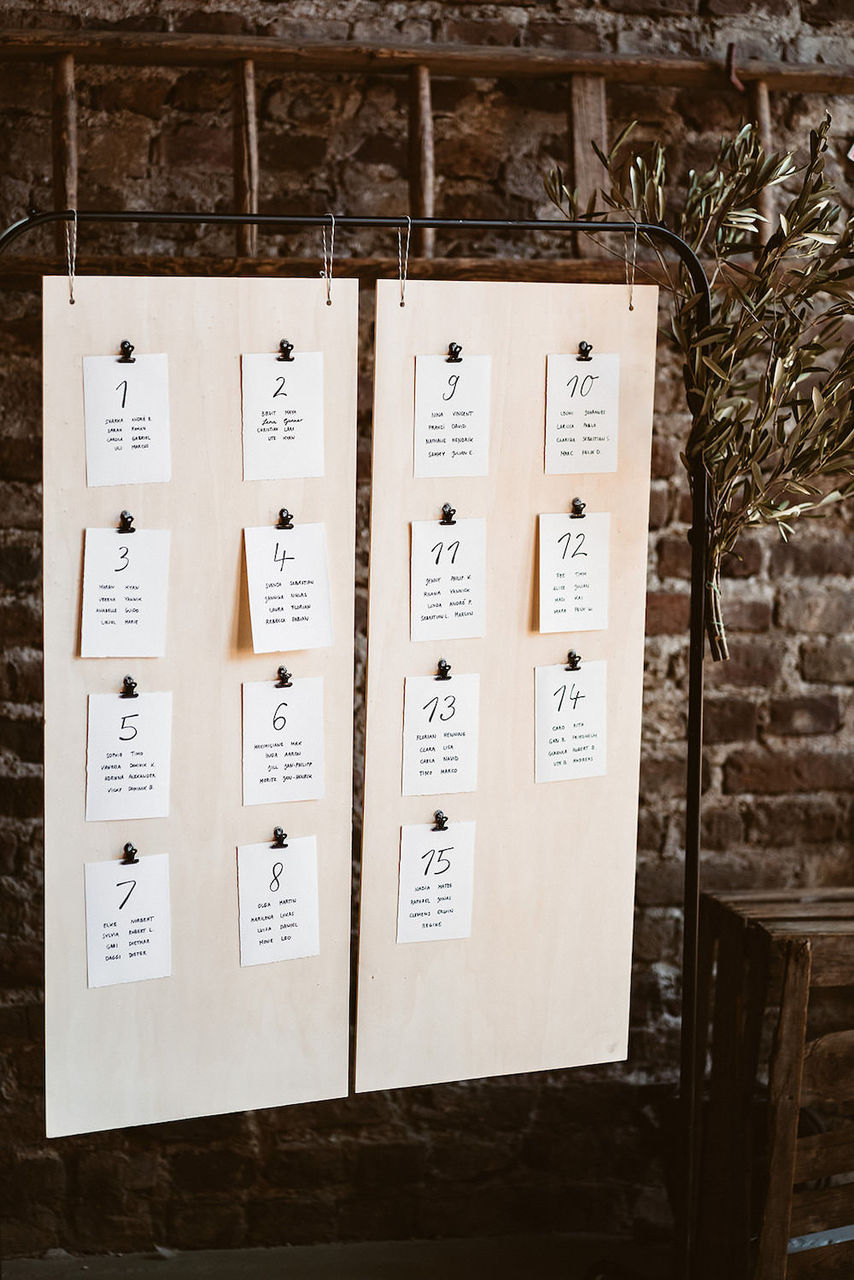 1
ANDRÉ R.
SARAH ROMAN
CAROLA GABRIEL
ULI MARCUS
2
BIRGIT MAYA
CHRISTIAN LARS
UTE RYAN
3
VERENA YANNICK
ANABELLE GUIDO
MARIE
4
SVENJA SEBASTIAN
JANINA NICLAS
LAURA FLORIAN
REBECCA FABIAN
5
SOPHIE TIMO
VANESSA DOMINIK K.
ADRIANA ALEXANDER
VICKY DOMINIK D.
6
MAXIMILIANE MAX
INGA AARON
JILL JAN-PHILIPP
MORITZ JAN-HENRIK
7
ELKE NORBERT
SYLVIA ROBERT L.
GABI DIETMAR
DAGGI DIETER
8
OLGA MARTIN
MARLENA LUKAS
LUISA DANIEL
MONIE LEO
9
NINA VINCENT
FRANZI DAVID
NATHALIE HENDRIK
SAMMY JULIAN E.
10
LEONI JOHANNES
LARISSA PABLO
CLARISSA SEBASTIAN S.
MARC FELIX D.
11
JENNY PHILIP K.
RICARDA YANNICK
LINDA ANDRÉ P.
SEBASTIAN L. MARLON
12
FEE TIMM
ELISE JULIAN
KAI
MARA FELIX W.
13
FLORIAN HENNING
CLARA LISA
CARLA NAVID
TIMO MARCO
14
CARO RITA
GABI B. FRIEDHELM
ROBERT B.
UTE B. ANDREAS
15
NADIA MATZE
RAPHAEL JONAS
CLEMENS ERWIN
REGINE